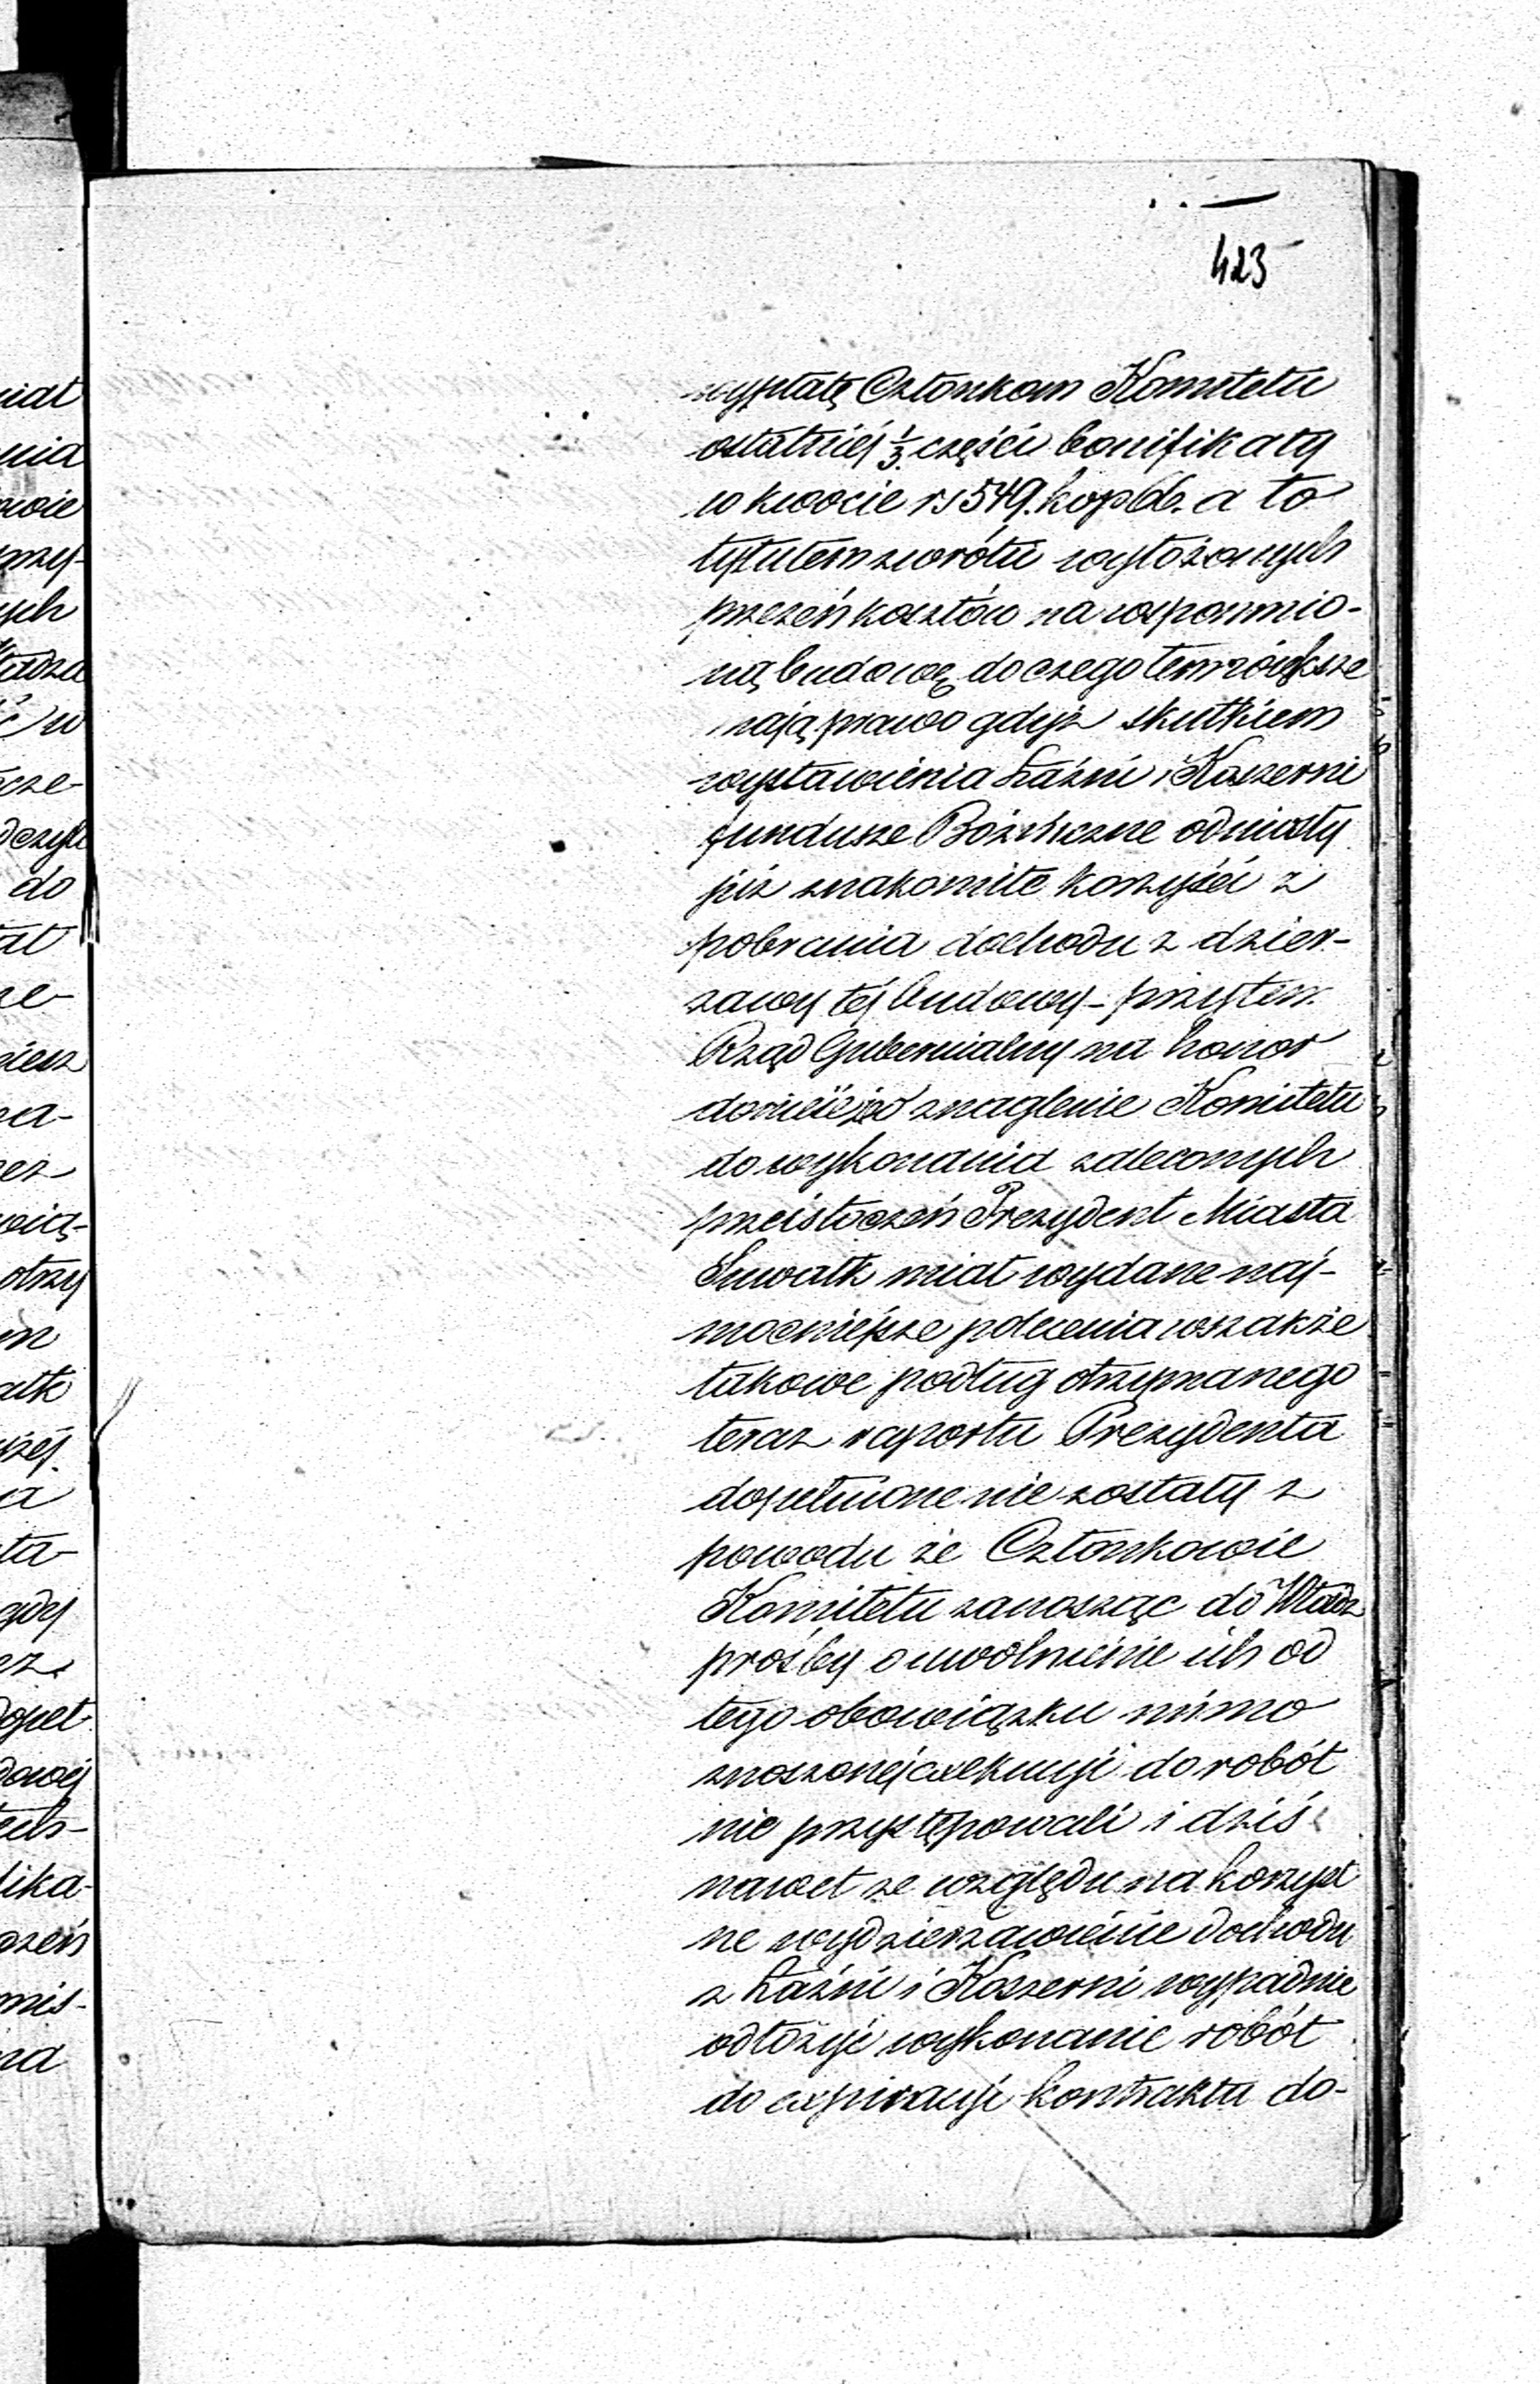 423
wypłatę Członkom Komitetu
ostatniéj 1/3. części bonifikaty
w kwocie rs 549. kop 6. a to
tytułem zwrótu wyłożonych
przezeń kosztów na wspomnio-
ną budowę, do czego tem większe
mają prawo gdyż skutkiem
wystawienia Łaźni i Koszerni
fundusze Bóżnicze odniosły
już znakomite korzyści z
pobrania dochodu z dzier-
żawy téj budowy - przytem
Rząd Gubernialny ma honor
donieść iż o znaglenie Komitetu
do wykonania zaleconych
przeistoczeń Prezydent Miasta
Suwałk miał wydane naj-
mocniejsze polecenia wszakże
takowe podług otrzymanego
teraz raportu Prezydenta
dopełnione nie zostały z
powodu że Członkowie
Komitetu zanosząc do Władz
prośby o uwolnienie ich od
tego obowiązku mimo
znoszonéj exekucyi do robót
nie przystępowali i dziś
nawet ze względu na korzyst
ne wydzierżawienie dochodu
z Łaźni i Koszerni wypadnie
odłożyć wykonanie robót
do expiracyi kontraktu do-